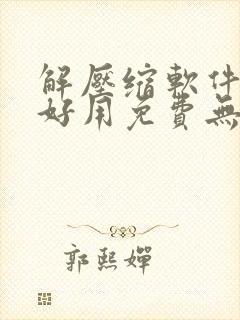 解壓缩軟件
好用免費無
郭熙嬋